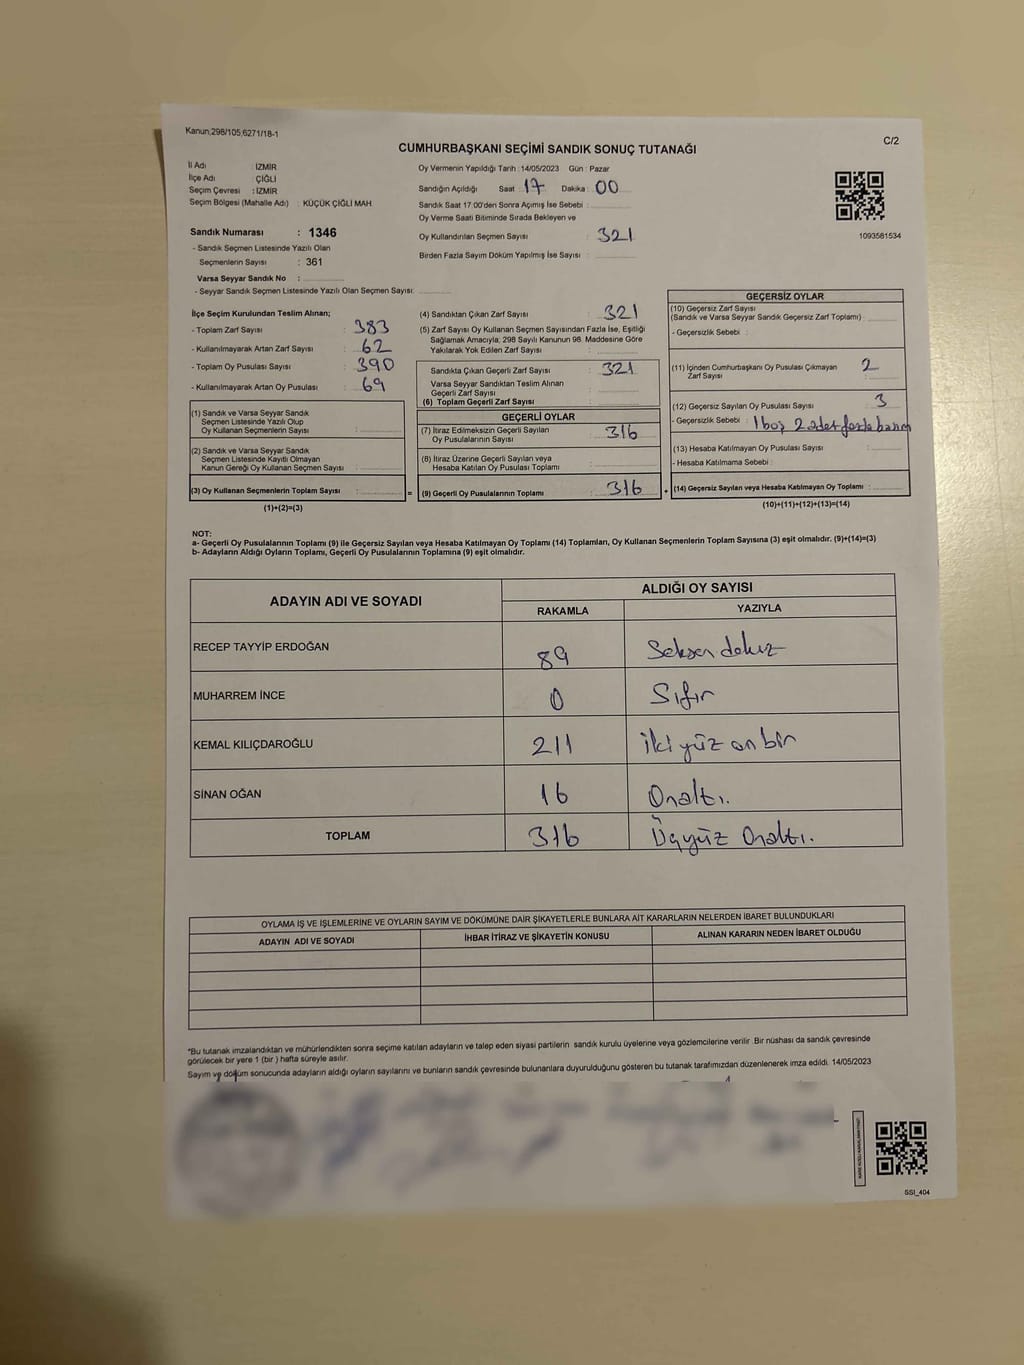 Kanun,298/105,6271/18-1
C/2
CUMHURBAŞKANI SEÇİMİ SANDIK SONUÇ TUTANAĞI
İl Adı : İZMİR
İlçe Adı : ÇİĞLİ
Seçim Çevresi : İZMİR
Seçim Bölgesi (Mahalle Adı) : KÜÇÜK ÇİĞLİ MAH.
Sandık Numarası : 1346
- Sandık Seçmen Listesinde Yazılı Olan
Seçmenlerin Sayısı : 361
Varsa Seyyar Sandık No :
- Seyyar Sandık Seçmen Listesinde Yazılı Olan Seçmen Sayısı:
Oy Vermenin Yapıldığı Tarih :14/05/2023 Gün : Pazar
Sandığın Açıldığı Saat : 17 Dakika : 00
Sandık Saat 17:00'den Sonra Açımış İse Sebebi :
Oy Verme Saati Bitiminde Sırada Bekleyen ve
Oy Kullandırılan Seçmen Sayısı : 321
Birden Fazla Sayım Döküm Yapılmış İse Sayısı :
1093581534
İlçe Seçim Kurulundan Teslim Alınan;
- Toplam Zarf Sayısı : 383
- Kullanılmayarak Artan Zarf Sayısı : 62
- Toplam Oy Pusulası Sayısı : 390
- Kullanılmayarak Artan Oy Pusulası : 69
(1) Sandık ve Varsa Seyyar Sandık
Seçmen Listesinde Yazılı Olup
Oy Kullanan Seçmenlerin Sayısı :
(2) Sandık ve Varsa Seyyar Sandık
Seçmen Listesinde Kayıtlı Olmayan
Kanun Gereği Oy Kullanan Seçmen Sayısı :
(3) Oy Kullanan Seçmenlerin Toplam Sayısı : =
(1)+(2)=(3)
(4) Sandıktan Çıkan Zarf Sayısı : 321
(5) Zarf Sayısı Oy Kullanan Seçmen Sayısından Fazla İse, Eşitliği
Sağlamak Amacıyla; 298 Sayılı Kanunun 98. Maddesine Göre
Yakılarak Yok Edilen Zarf Sayısı :
Sandıkta Çıkan Geçerli Zarf Sayısı : 321
Varsa Seyyar Sandıktan Teslim Alınan
Geçerli Zarf Sayısı :
(6) Toplam Geçerli Zarf Sayısı :
GEÇERLİ OYLAR
(7) İtiraz Edilmeksizin Geçerli Sayılan
Oy Pusulalarının Sayısı : 316
(8) İtiraz Üzerine Geçerli Sayılan veya
Hesaba Katılan Oy Pusulası Toplamı :
(9) Geçerli Oy Pusulalarının Toplamı : 316 +
GEÇERSİZ OYLAR
(10) Geçersiz Zarf Sayısı
(Sandık ve Varsa Seyyar Sandık Geçersiz Zarf Toplamı) :
- Geçersizlik Sebebi :
(11) İçinden Cumhurbaşkanı Oy Pusulası Çıkmayan
Zarf Sayısı : 2
(12) Geçersiz Sayılan Oy Pusulası Sayısı : 3
- Geçersizlik Sebebi : 1 boş 2 adet fazla
(13) Hesaba Katılmayan Oy Pusulası Sayısı :
- Hesaba Katılmama Sebebi :
(14) Geçersiz Sayılan veya Hesaba Katılmayan Oy Toplamı :
(10)+(11)+(12)+(13)=(14)
NOT:
a- Geçerli Oy Pusulalarının Toplamı (9) ile Geçersiz Sayılan veya Hesaba Katılmayan Oy Toplamı (14) Toplamları, Oy Kullanan Seçmenlerin Toplam Sayısına (3) eşit olmalıdır. (9)+(14)=(3)
b- Adayların Aldığı Oyların Toplamı, Geçerli Oy Pusulalarının Toplamına (9) eşit olmalıdır.
ADAYIN ADI VE SOYADI
ALDIĞI OY SAYISI
RAKAMLA YAZIYLA
RECEP TAYYİP ERDOĞAN 89 Seksen dokuz
MUHARREM İNCE 0 Sıfır
KEMAL KILIÇDAROĞLU 211 iki yüz on bir
SİNAN OĞAN 16 Onaltı.
TOPLAM 316 Üçyüz Onaltı.
OYLAMA İŞ VE İŞLEMLERİNE VE OYLARIN SAYIM VE DÖKÜMÜNE DAİR ŞİKAYETLERLE BUNLARA AİT KARARLARIN NELERDEN İBARET BULUNDUKLARI
ADAYIN ADI VE SOYADI İHBAR İTİRAZ VE ŞİKAYETİN KONUSU ALINAN KARARIN NEDEN İBARET OLDUĞU
*Bu tutanak imzalandıktan ve mühürlendikten sonra seçime katılan adayların ve talep eden siyasi partilerin sandık kurulu üyelerine veya gözlemcilerine verilir .Bir nüshası da sandık çevresinde
görülecek bir yere 1 (bir ) hafta süreyle asılır.
Sayım ve döküm sonucunda adayların aldığı oyların sayılarını ve bunların sandık çevresinde bulunanlara duyurulduğunu gösteren bu tutanak tarafımızdan düzenlenerek imza edildi. 14/05/2023
SSI_404